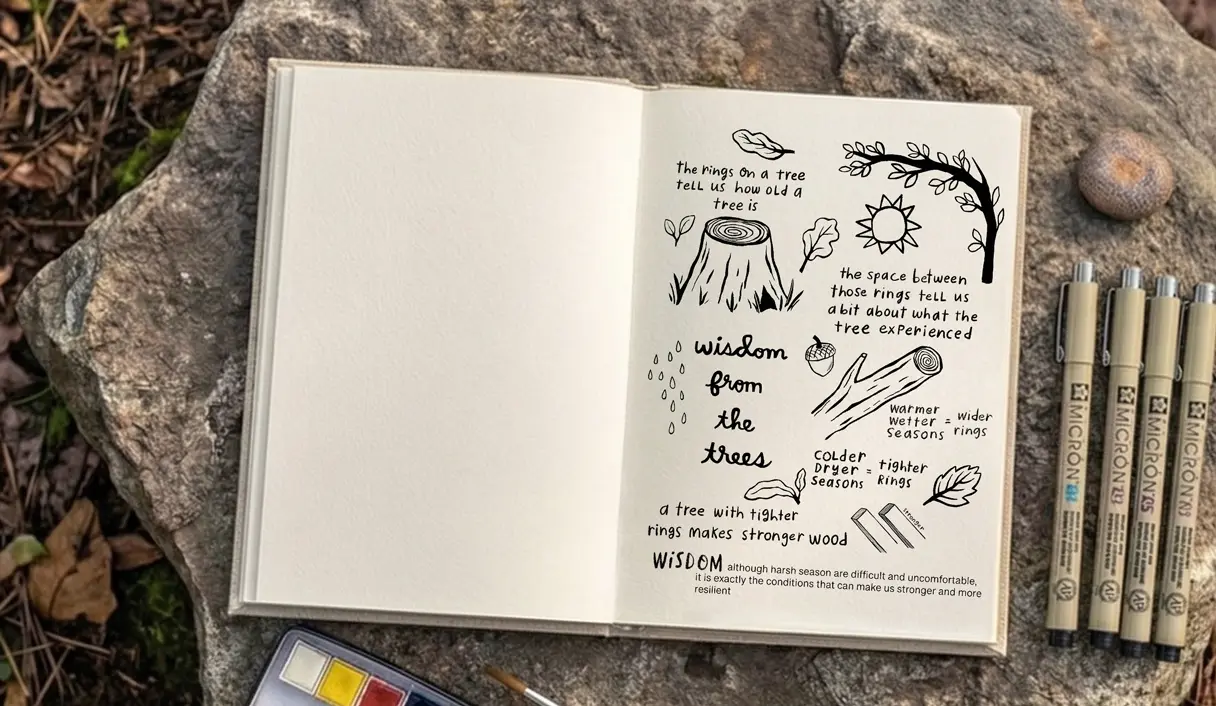 the rings on a tree
tell us how old a
tree is
the space between
those rings tell us
a bit about what the
tree experienced
wisdom
from
the
trees
warmer
wetter = wider
seasons rings
colder
Dryer = tighter
Seasons Rings
a tree with tighter
rings makes stronger wood
stronger
WiSDOM although harsh season are difficult and uncomfortable,
it is exactly the conditions that can make us stronger and more
resilient
MICRON
MICRON
MICRON
MICRON